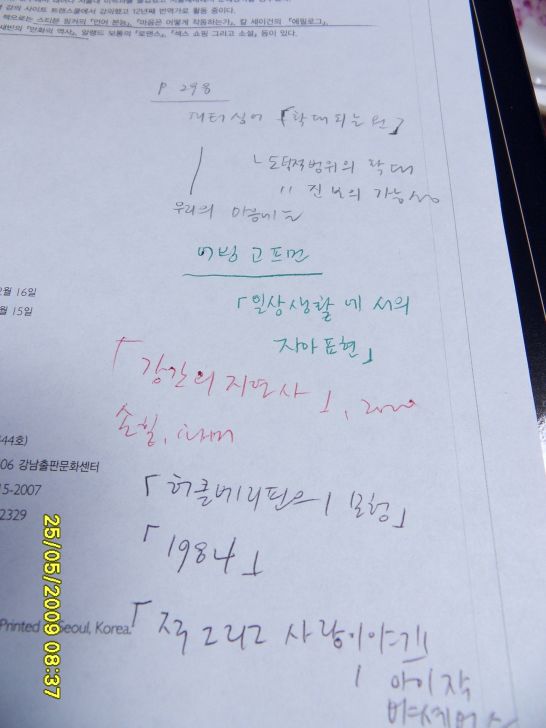 강의 사이트 트랜스쿨에서 강의했고 12년째 번역가로 활동 중이다.
책으로는 스티븐 핑커의 『언어 본능』, 『마음은 어떻게 작동하는가』, 칼 세이건의 『에필로그』,
『만화의 역사』, 알랭드 보통의 『로맨스』, 『섹스 쇼핑 그리고 소설』 등이 있다.
P 298
피터싱어 「확대되는 원」
도덕적 범위의 확대
〃 진보의 가능성
우리의
어빙 고프먼
「일상생활에서의
자아표현」
「강간의 자연사」, 2000
손힐, 파머
「허클베리핀의 모험」
「1984」
「적 그리고 사랑이야기」
아이작
2월 16일
월 15일
44호)
06 강남출판문화센터
15-2007
2329
Printed in Seoul, Korea.
25/05/2009 08:37